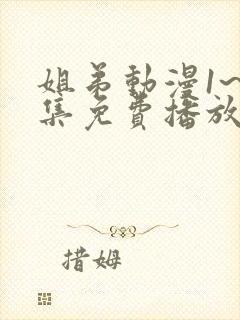 姐弟動漫1~
集免費播放
措姆